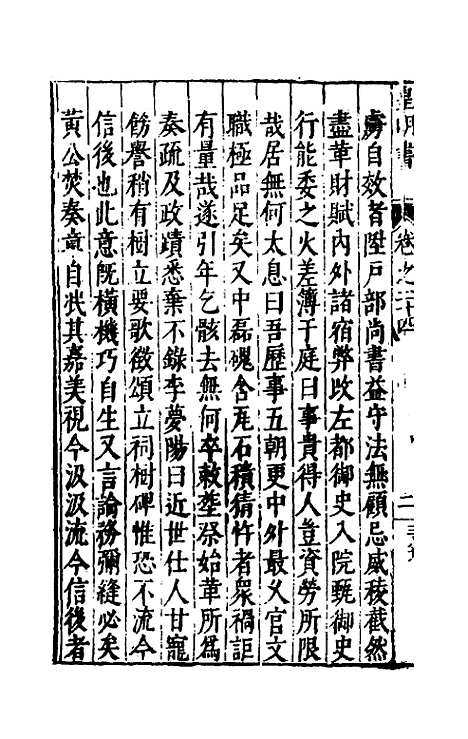 虜自效者陞戶部尚書益守法無顧忌威稜截然
盡革財賦內外諸宿弊改左都御史入院甄御史
行能委之火差簿于庭曰事貴得人豈資勞所限
哉居無何太息曰吾歷事五朝更中外最乆官文
職極品足矣又中磊磈舍瓦石積猜忤者衆禍詎
有量哉遂引年乞骸去無何卒敕塟祭始革所爲
奏疏及政蹟悉棄不錄李夢陽曰近世仕人甘寵
飭譽稍有樹立要歌徵頌立祠樹碑惟恐不流今
信後也此意旣橫機巧自生又言論務彌縫必矣
黃公焚奏章自兆其嘉美視今汲汲流今信後者
皇明書
卷之二十四